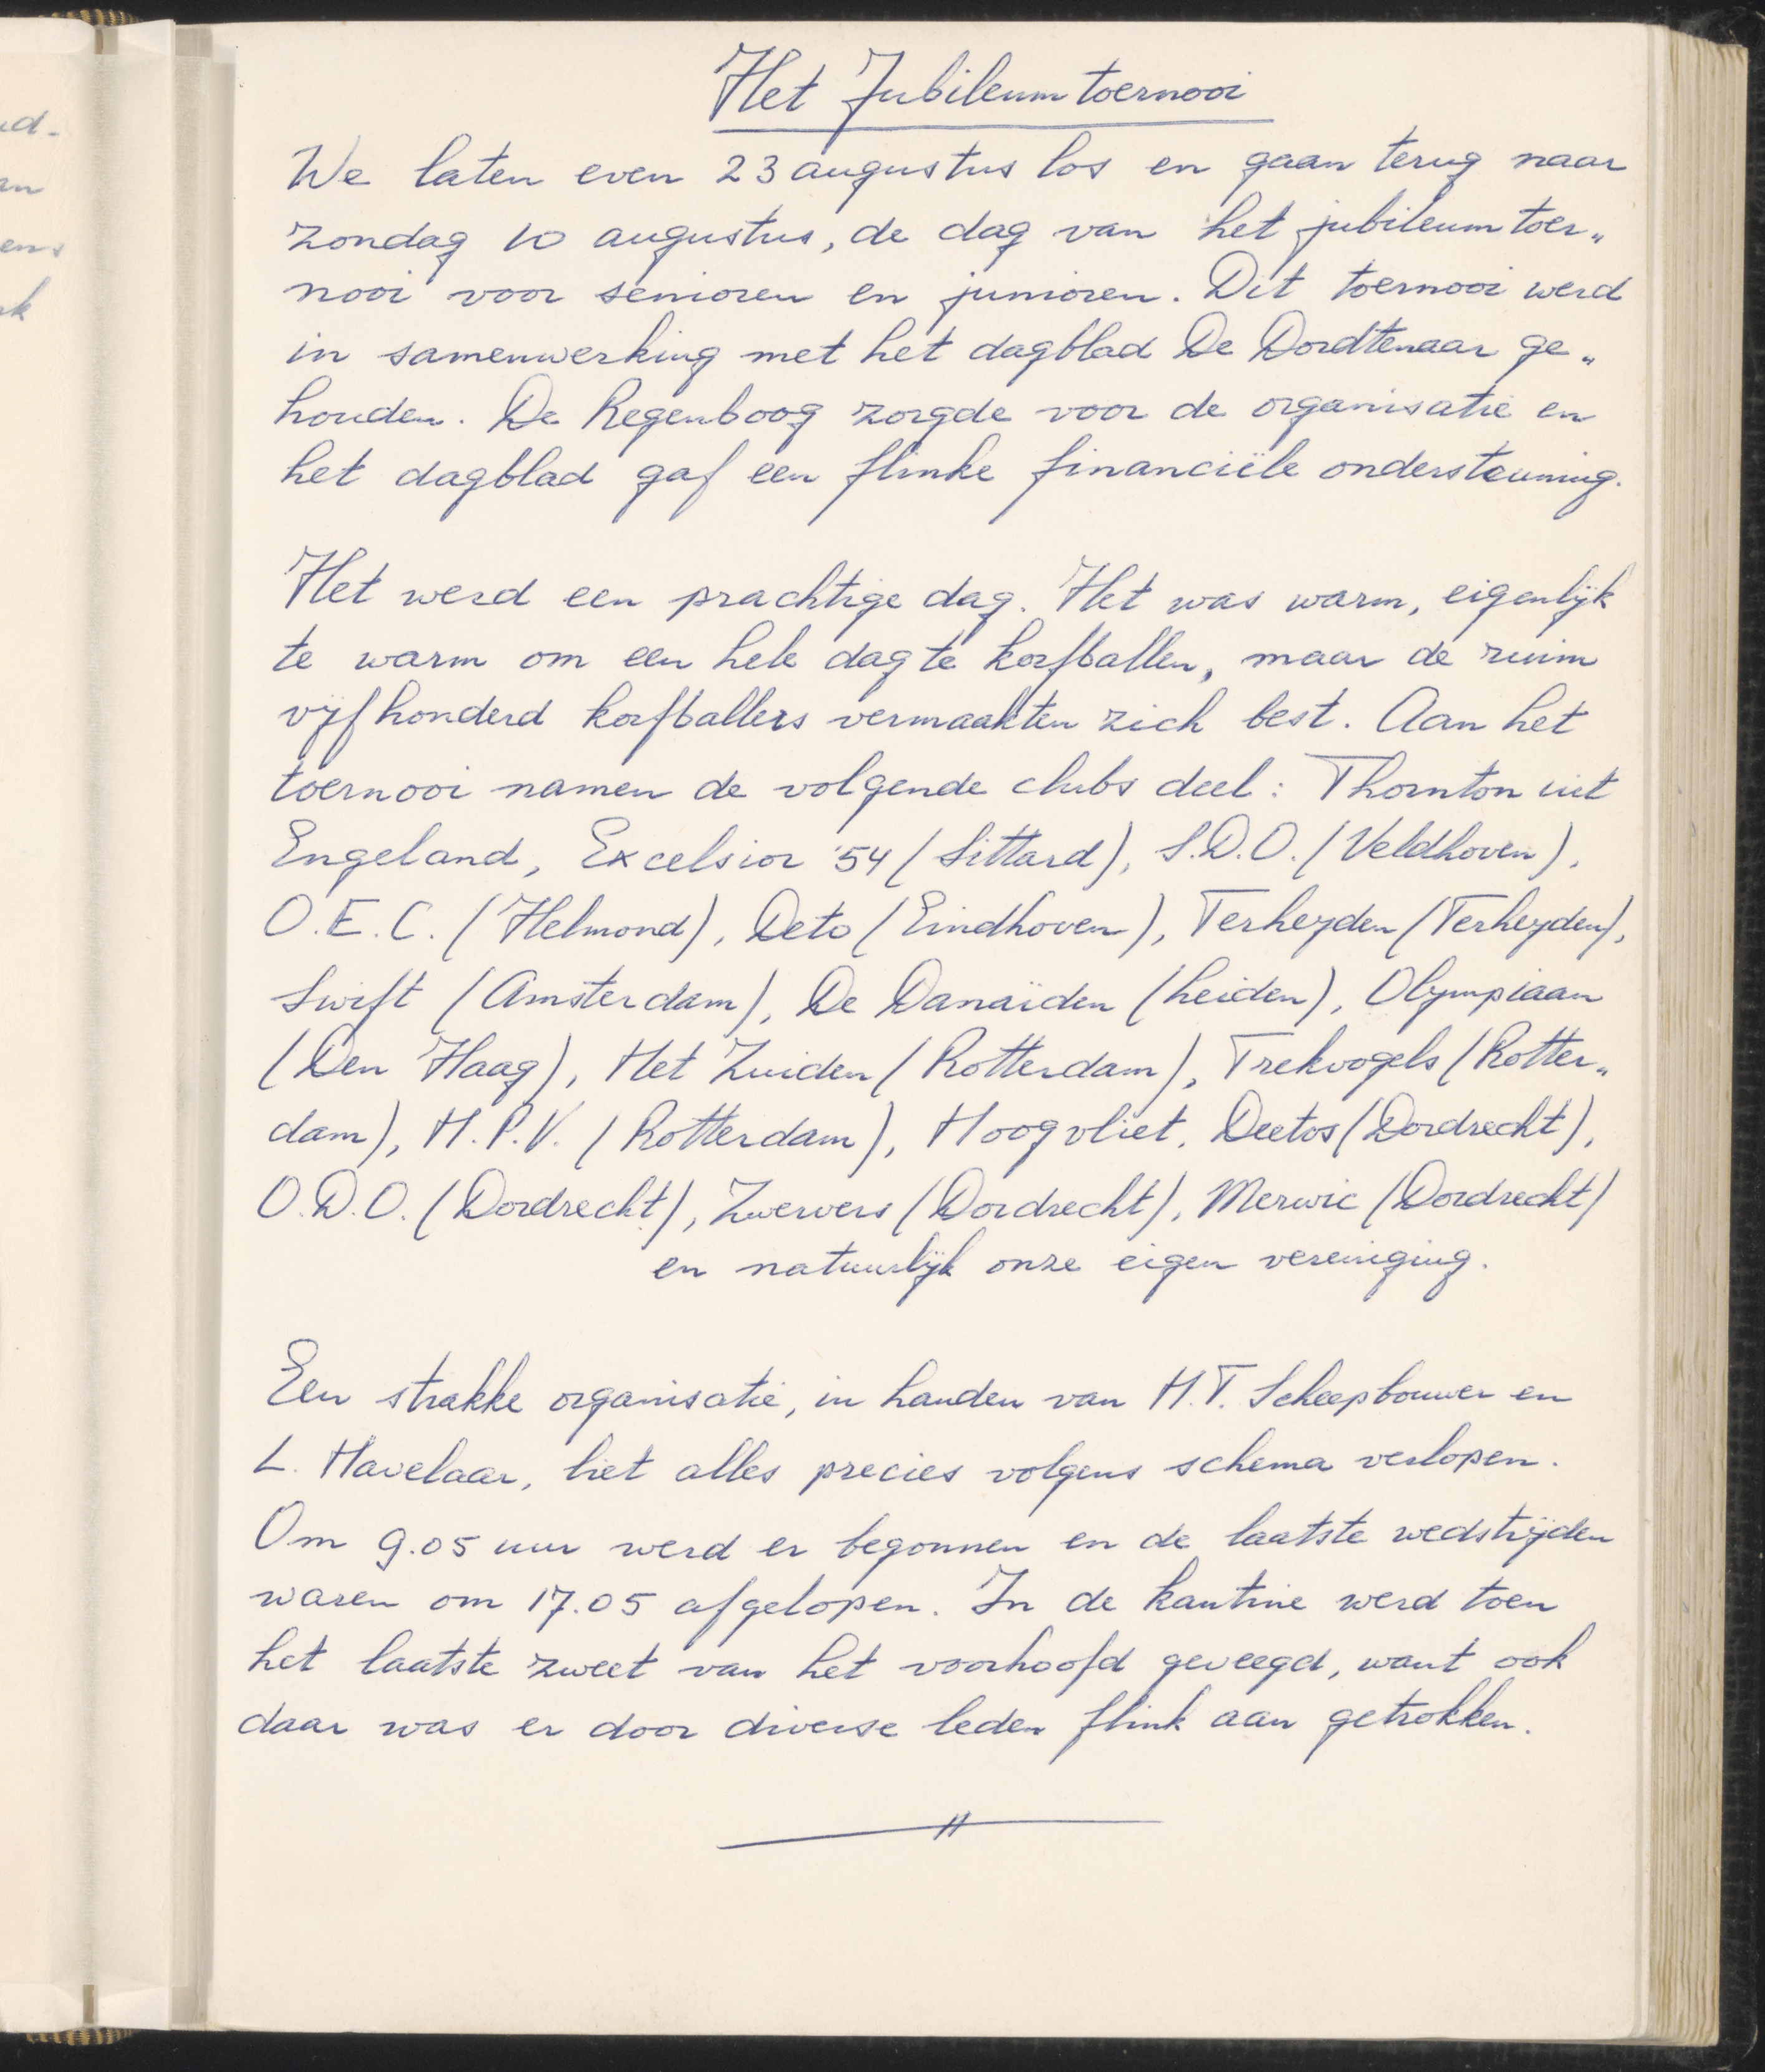 Het Jubileumtoernooi
We laten even 23 augustus los en gaan terug naar
zondag 10 augustus, de dag van het jubileumtoer„
nooi voor senioren en junioren. Dit toernooi werd
in samenwerking met het dagblad De Dordtenaar ge„
houden. De Regenboog zorgde voor de organisatie en
het dagblad gaf een flinke financiële ondersteuning.
Het werd een prachtige dag. Het was warm, eigenlijk
te warm om een hele dag te korfballen, maar de ruim
vijfhonderd korfballers vermaakten zich best. Aan het
toernooi namen de volgende clubs deel: Thornton uit
Engeland, Excelsior '54 (Sittard), S.D.O. (Veldhoven),
O.E.C. (Helmond), Deto (Eindhoven), Terheyden (Terheyden),
Swift (Amsterdam), De Danaïden (Leiden), Olympiaan
(Den Haag), Het Zuiden (Rotterdam), Trekvogels (Rotter„
dam), H.P.V. (Rotterdam), Hoogvliet, Deetos (Dordrecht),
O.D.O. (Dordrecht), Zwervers (Dordrecht), Merwic (Dordrecht)
en natuurlijk onze eigen vereniging.
Een strakke organisatie, in handen van H.T. Scheepbouwer en
L. Havelaar, liet alles precies volgens schema verlopen.
Om 9.05 uur werd er begonnen en de laatste wedstrijden
waren om 17.05 afgelopen. In de kantine werd toen
het laatste zweet van het voorhoofd geveegd, want ook
daar was er door diverse leden flink aan getrokken.